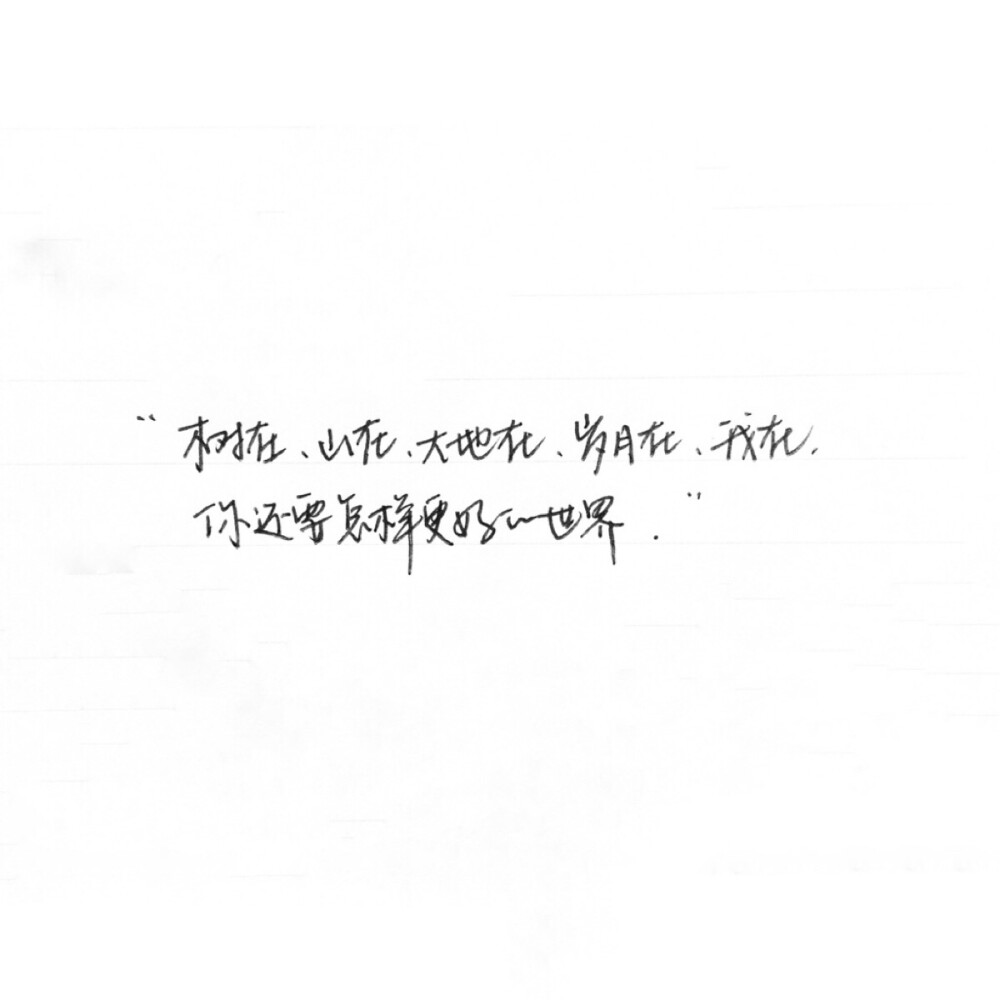 “树在、山在、大地在、岁月在、我在.
你还要怎样更好的世界.”